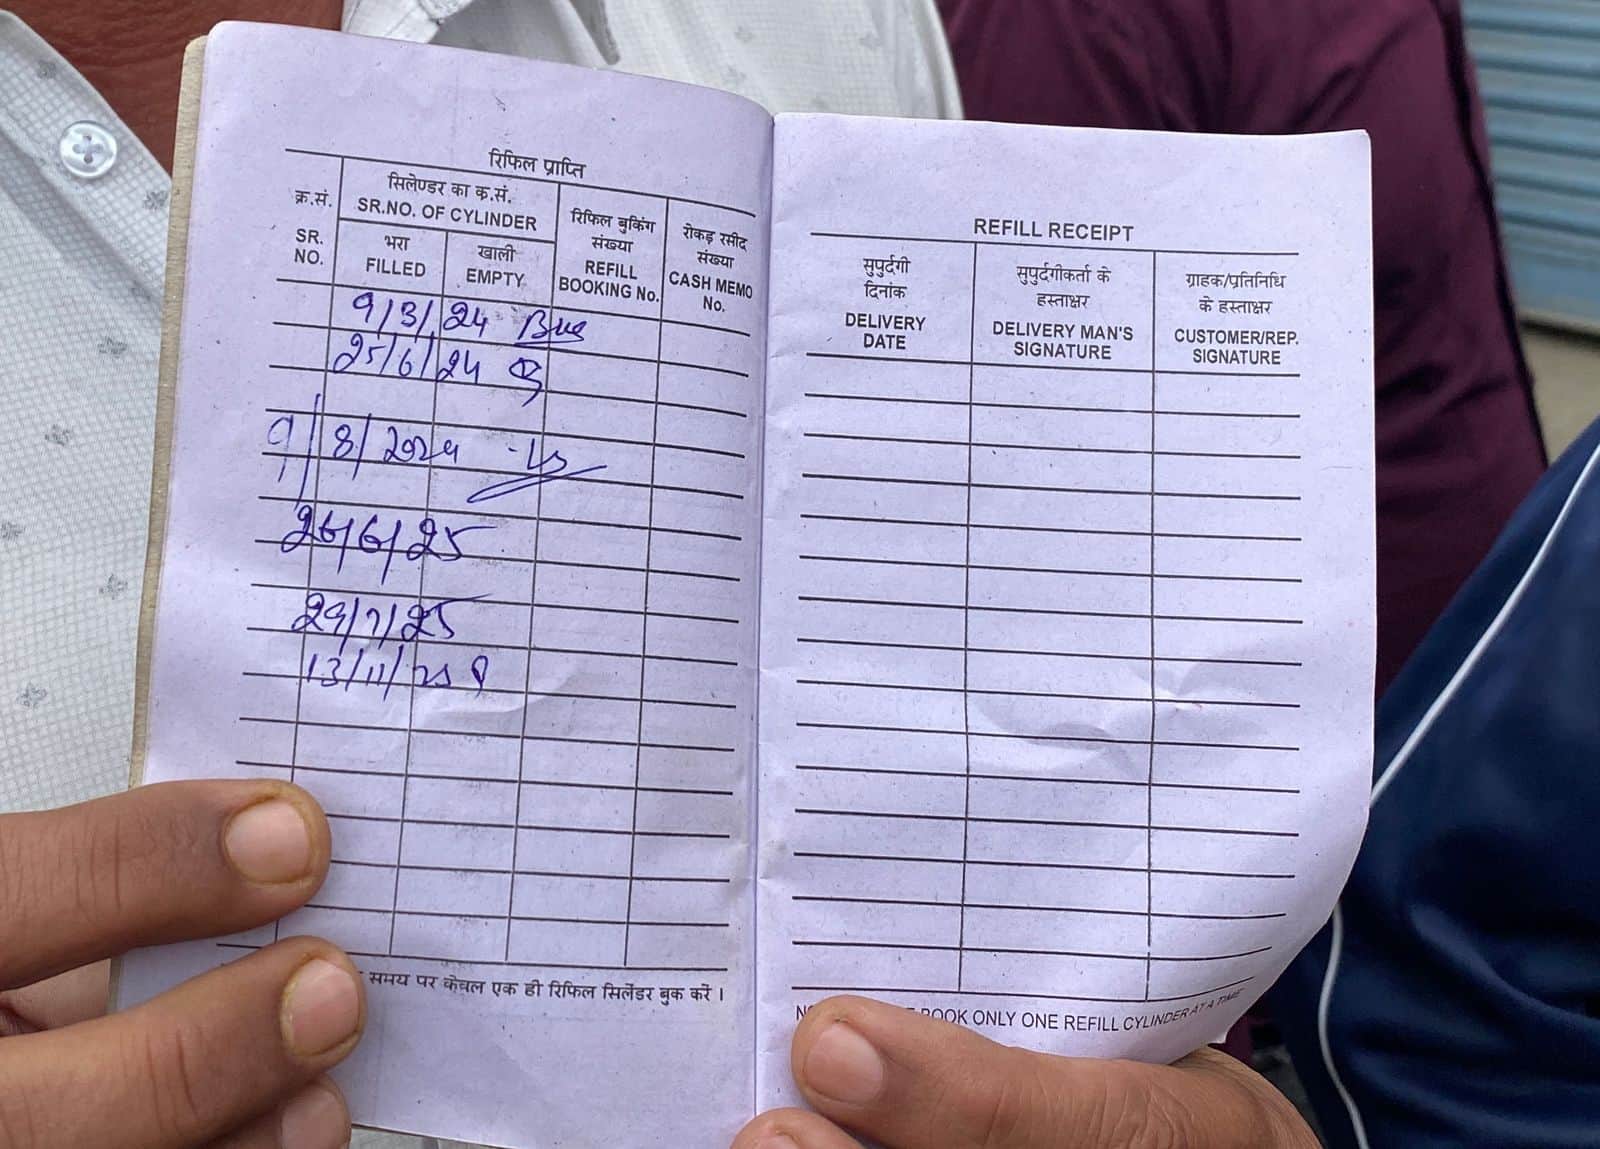 रिफिल प्राप्ति
क्र.सं.
SR.
NO.
सिलेण्डर का क्र.सं.
SR.NO. OF CYLINDER
भरा
FILLED
खाली
EMPTY
रिफिल बुकिंग
संख्या
REFILL
BOOKING No.
रोकड़ रसीद
संख्या
CASH MEMO
No.
9/3/24
25/6/24
9/8/2024
26/6/25
29/7/25
13/11/25
समय पर केवल एक ही रिफिल सिलेंडर बुक करें ।
REFILL RECEIPT
सुपुर्दगी
दिनांक
DELIVERY
DATE
सुपुर्दगीकर्ता के
हस्ताक्षर
DELIVERY MAN'S
SIGNATURE
ग्राहक/प्रतिनिधि
के हस्ताक्षर
CUSTOMER/REP.
SIGNATURE
BOOK ONLY ONE REFILL CYLINDER AT A TIME